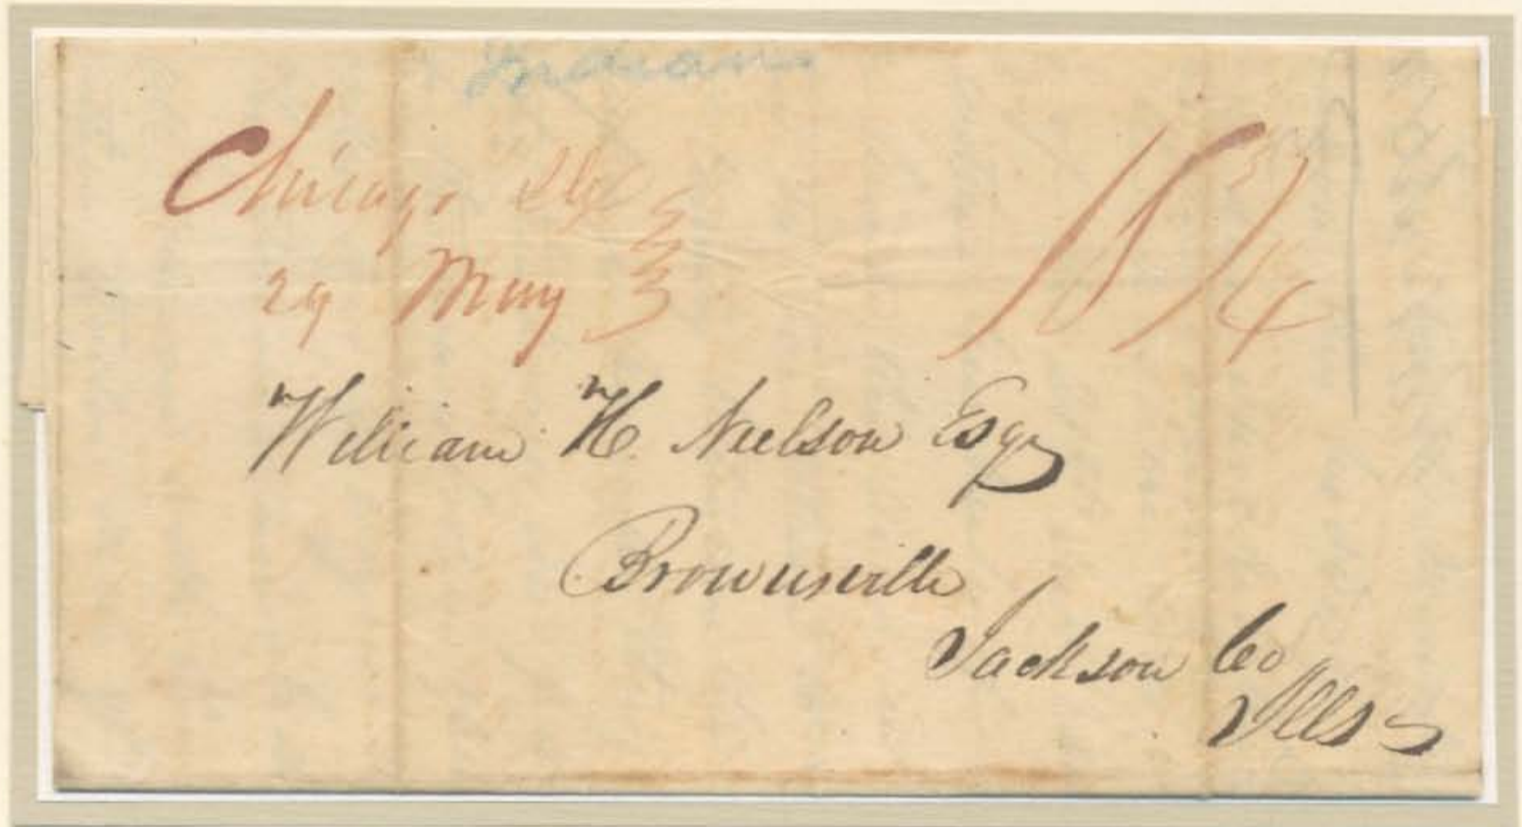 Indians
Chicago Ills
29 May 3
18 3/4
William H. Neelson Esqr
Brownsville
Jackson Co
Ills